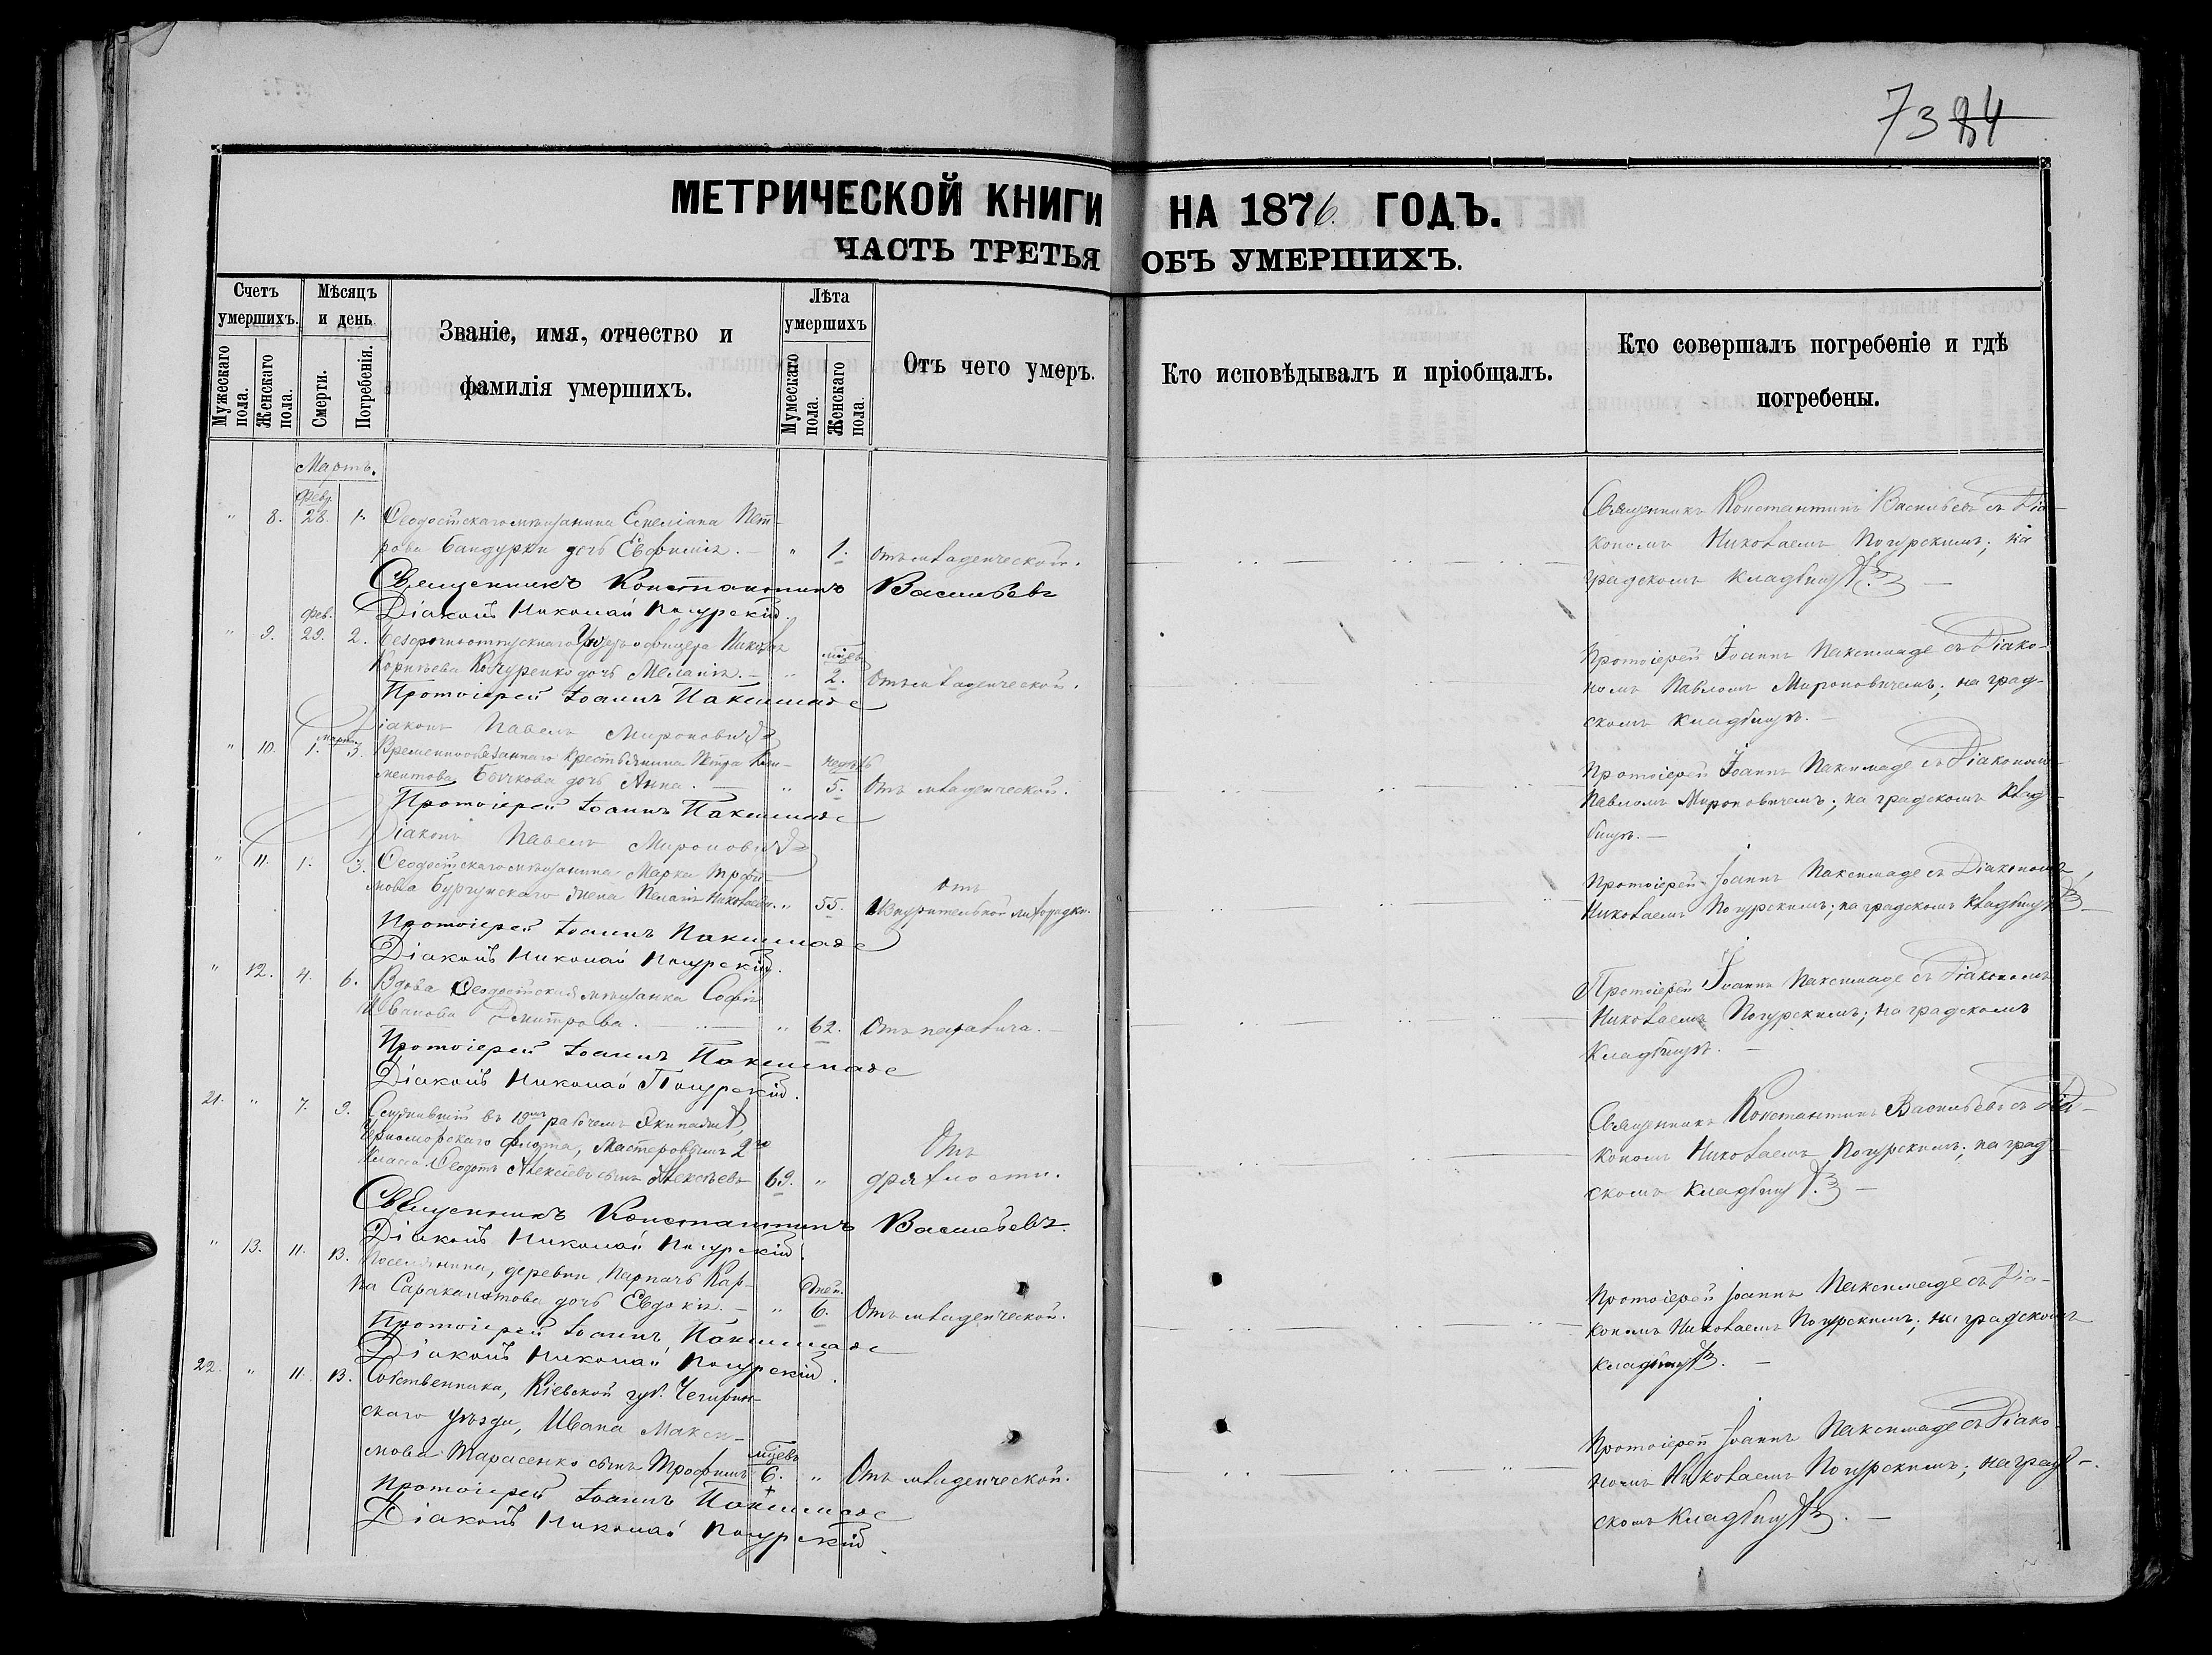 73 84
МЕТРИЧЕСКОЙ КНИГИ НА 1876. ГОДЪ.
ЧАСТЬ ТРЕТЬЯ ОБЪ УМЕРШИХЪ.
Счетъ умершихъ.
Мужескаго пола.
Женскаго пола.
Мѣсяцъ и день
Смерти.
Погребенія.
Званіе, имя, отчество и
фамилія умершихъ.
Лѣта умершихъ
Мужескаго пола.
Женскаго пола.
Отъ чего умеръ.
Кто исповѣдывалъ и пріобщалъ.
Кто совершалъ погребеніе и гдѣ
погребены.
Мартъ.
Февр.
" 8. 28. 1. Ѳеодосійскаго мѣщанина Емеліана Пет-
рова Бандурки дочь Евфимія. — " 1. Отъ младенческой.
Священникъ Константинъ Васильевъ съ Діа-
кономъ Николаемъ Погурскимъ; на
градскомъ кладбищѣ. —
Священникъ Константинъ Васильевъ
Діаконъ Николай Погурскій.
Фев.
" 9. 29. 2. Безсрочноотпускнаго Унтеръ офицера Николая
Корнѣева Кочуренко дочь Меланія. — " мѣсцв 2. Отъ младенческой.
Протоіерей Іоаннъ Паксимаде съ Діако-
номъ Павломъ Мироновичемъ; на град-
скомъ кладбищѣ. —
Протоіерей Іоаннъ Паксимаде
Діаконъ Павелъ Мироновичъ
Марта
" 10. 1. 3. Временнообязаннаго крестьянина Петра Кли-
ментова Бычкова дочь Анна. — " 5. Отъ младенческой.
Протоіерей Іоаннъ Паксимаде съ Діакономъ
Павломъ Мироновичемъ; на градскомъ клад-
бищѣ. —
Протоіерей Іоаннъ Паксимаде
Діаконъ Павелъ Мироновичъ
" 11. 1. 3. Ѳеодосійскаго мѣщанина Марка Трофи-
мова жена Пелагія Николаева. " 55. Отъ изнурительной лихорадки.
Протоіерей Іоаннъ Паксимаде съ Діакономъ
Николаемъ Погурскимъ; на градскомъ кладбищѣ —
Протоіерей Іоаннъ Паксимаде
Діаконъ Николай Погурскій.
" 12. 4. 6. Вдова Ѳеодосійская мѣщанка Софія
Иванова Дмитрова. — " 62. Отъ паралича. —
Протоіерей Іоаннъ Паксимаде съ Діакономъ
Николаемъ Погурскимъ; на градскомъ
кладбищѣ. —
Протоіерей Іоаннъ Паксимаде
Діаконъ Николай Погурскій.
21. " 7. 9. Служившій въ рабочемъ Экипажѣ,
Черноморскаго флота, Мастеровымъ 2го
класса Ѳеодотъ Алексѣевъ сынъ Алексѣевъ 69. " Отъ дряхлости.
Священникъ Константинъ Васильевъ съ Діа-
кономъ Николаемъ Погурскимъ; на град-
скомъ кладбищѣ. —
Священникъ Константинъ Васильевъ.
Діаконъ Николай Погурскій
" 13. 11. 13. Поселянина, деревни Парпачъ
дочь Евдокія. — " Дней. 6. Отъ младенческой.
Протоіерей Іоаннъ Паксимаде съ Діа-
кономъ Николаемъ Погурскимъ; на градскомъ
кладбищѣ. —
Протоіерей Іоаннъ Паксимаде
Діаконъ Николай Погурскій.
22. " 11. 13. Собственника, Кіевской губ. Чегирин-
скаго уѣзда, Ивана Макси-
мова Тарасенко сынъ Трофимъ мѣсцвъ 6. " Отъ младенческой.
Протоіерей Іоаннъ Паксимаде съ Діако-
номъ Николаемъ Погурскимъ; на град-
скомъ кладбищѣ. —
Протоіерей Іоаннъ Паксимаде
Діаконъ Николай Погурскій.